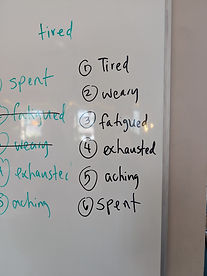 tired
spent
fatigued
weary
exhausted
aching
① Tired
② weary
③ fatigued
④ exhausted
⑤ aching
⑥ spent